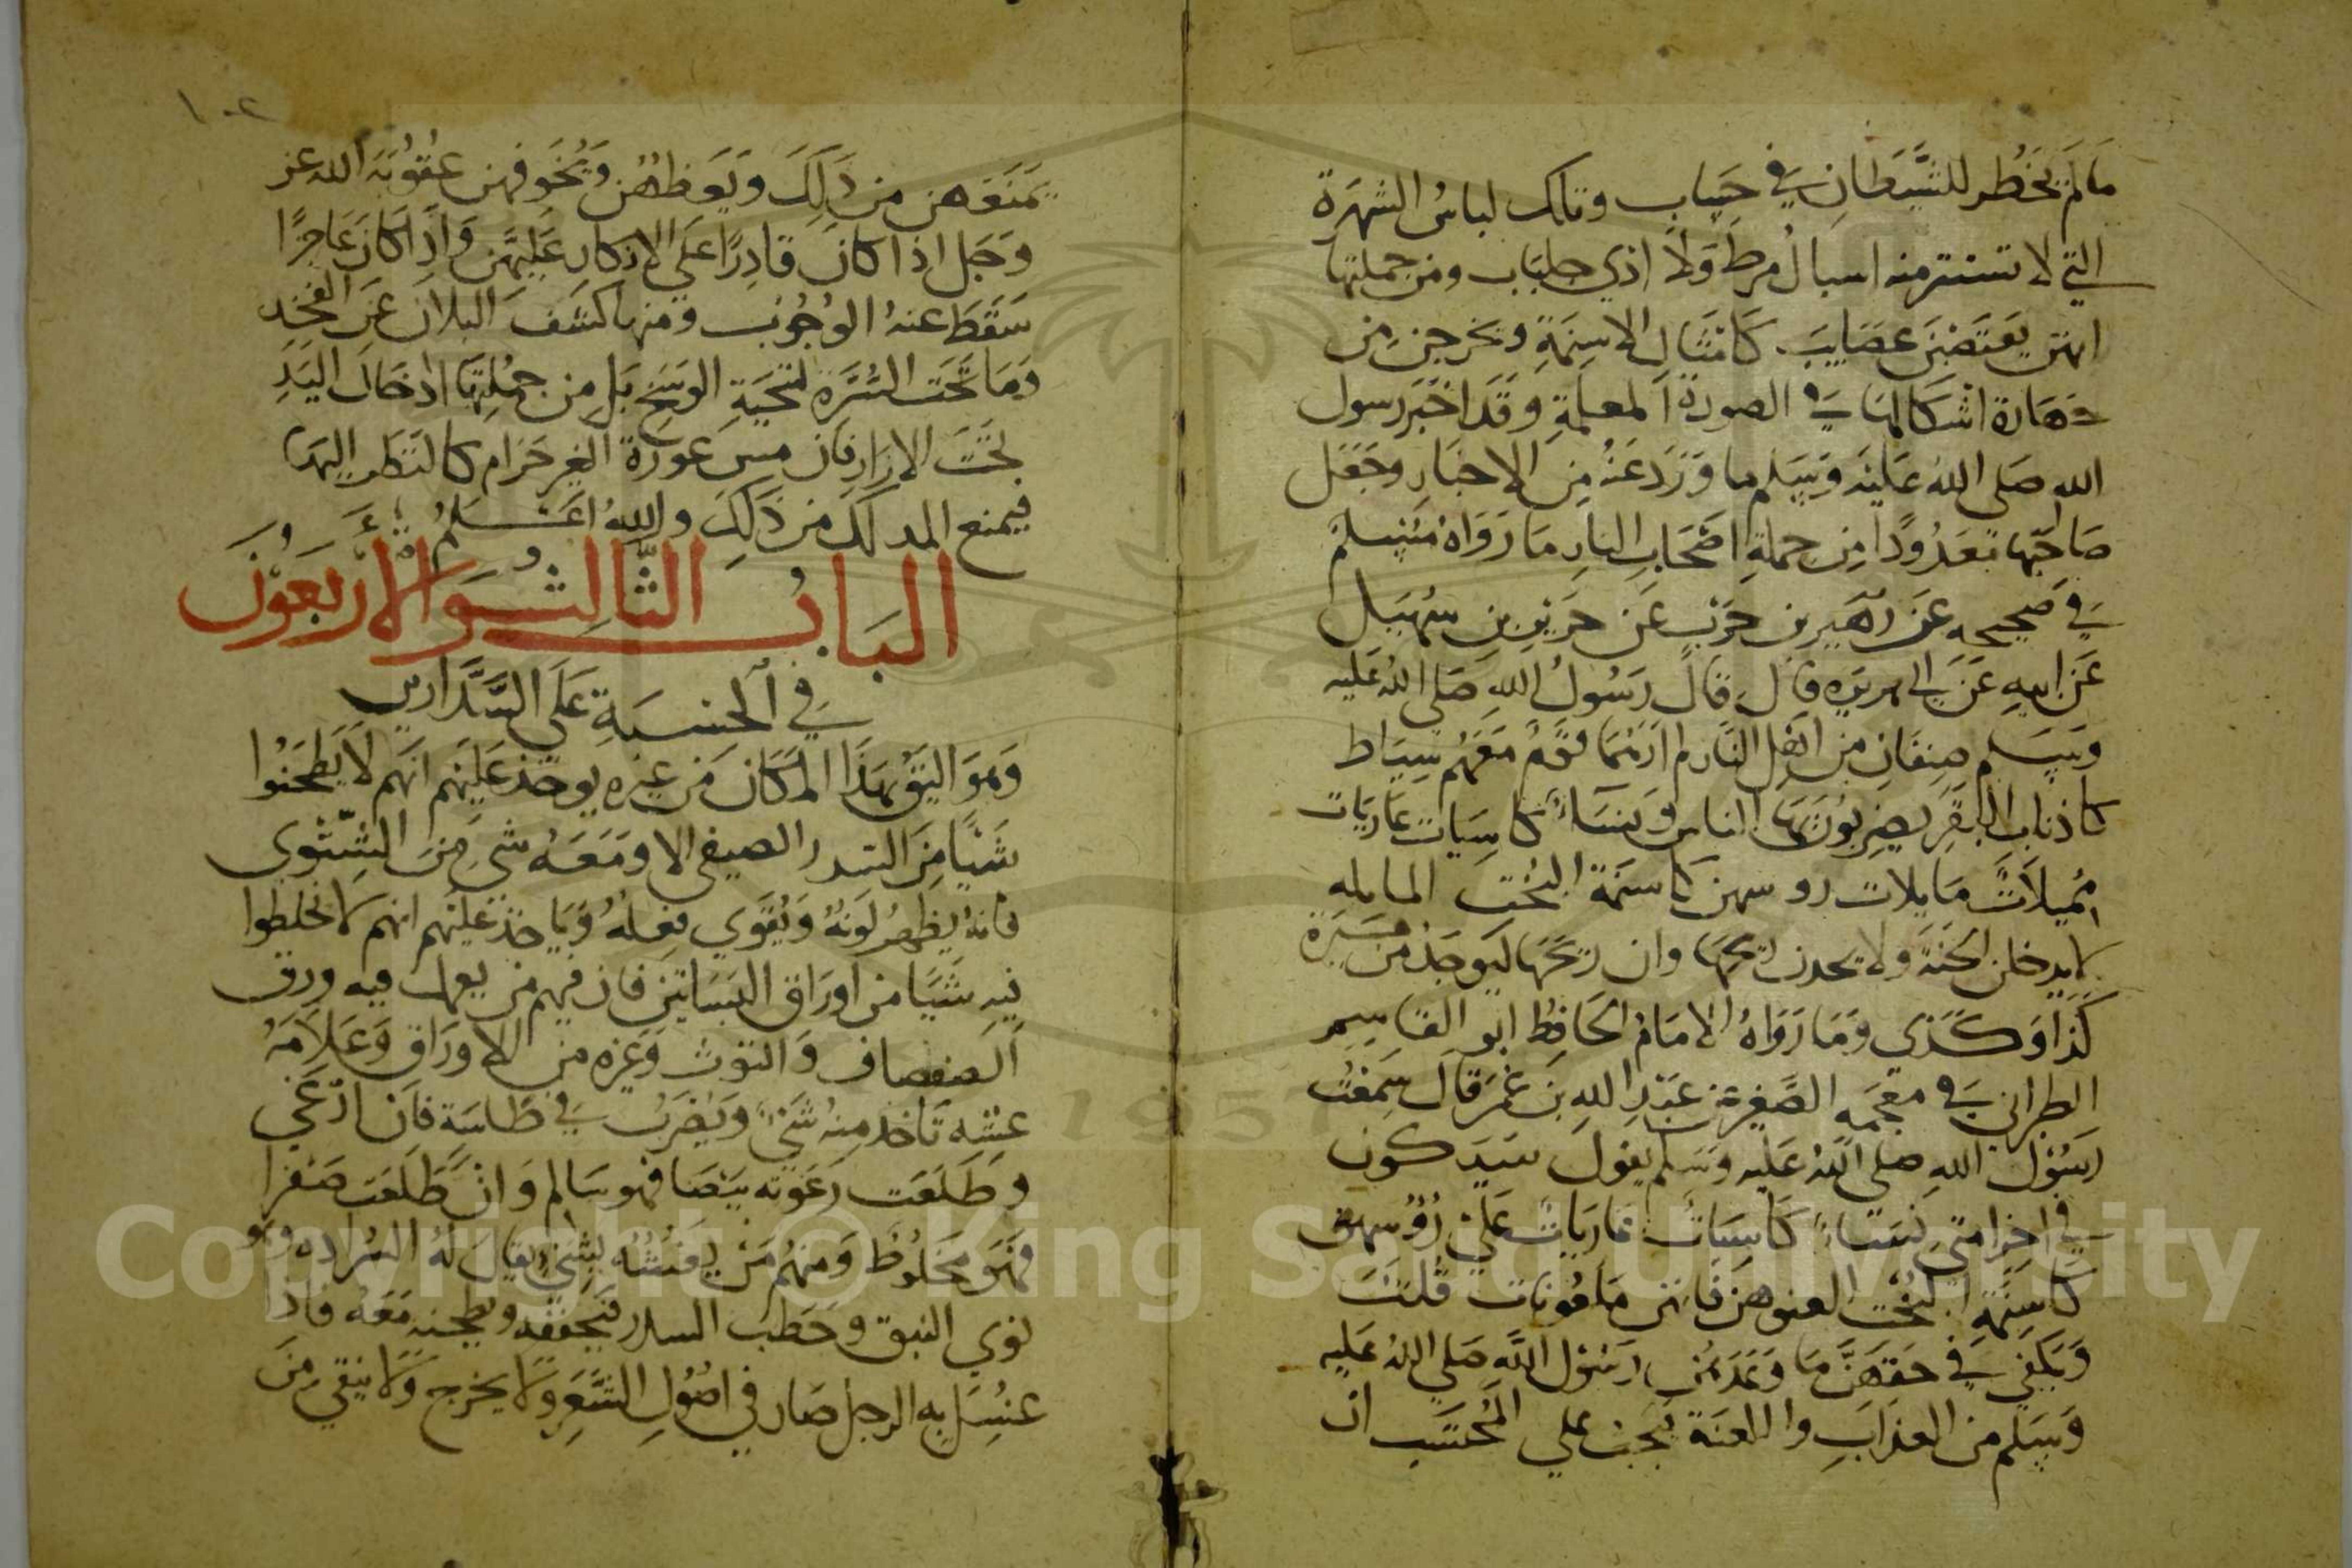 ما لم يخطر للشيطان في حساب وتلك لباس الشهرة
التي لا تستتر منه اسبال مرط ولا اذي جلباب ومن جملتها
انهن يعتصبن عصايب كامثال الاسنمة ويخرجن من
جهارة اشكالها في الصورة المعلمة وقد اخبر رسول
الله صلى الله عليه وسلم ما ورد عنه من الاخبار وجعل
صاحبها معدودا من جملة اصحاب النار ما رواه مسلم
في صحيحه عن زهير بن حرب عن جرير بن سهيل
عن ابيه عن ابي هريره قال قال رسول الله صلى الله عليه
وسلم صنفان من اهل النار لم ارهما قوم معهم سياط
كاذناب البقر يضربون بها الناس ونساء كاسيات عاريات
مميلات مايلات روسهن كاسنمة البخت المايله
لا يدخلن الجنة ولا يجدن ريحها وان ريحها ليوجد من مسيرة
كذا وكذي وما رواه الامام الحافظ ابو القاسم
الطبراني في معجمه الصغير عن عبد الله بن عمر قال سمعت
رسول الله صلى الله عليه وسلم يقول سيكون
في اخر امتي نساء كاسيات عاريات على رؤسهن
كاسنمة البخت العنوهن فانهن ملعونات قلت
ويكفي في حقهن ما وعدهن رسول الله صلى الله عليه
وسلم من العذاب واللعنة يجب علي المحتسب ان
١٠٢
يمنعهن من ذلك ويعظهن ويخوفهن عقوبة الله عز
وجل اذا كان قادرا على الانكار عليهن واذا كان عاجزا
سقط عنه الوجوب ومنها كشف البلان عن الفخد
وما تحت السرة لتنحية الوسخ بل من جملتها ادخال اليد
تحت الازار فان مس عورة الغير حرام كالنظر اليها
فيمنع المدلك من ذلك والله اعلم
الباب الثالث والاربعون
في الحسبة على السدارين
وهو اليق بهذا المكان من غيره يوخذ عليهم انهم لا يطحنوا
شيا من السدر الصيفي الا ومعه شي من الشتوي
فانه يظهر لونه ويقوي فعله وياخذ عليهم انهم لا يخلطوا
فيه شيا من اوراق البساتين فان فيهم من يعمل فيه ورق
الصفصاف والتوث وغيره من الاوراق وعلامة
غشه تاخذ منه شي ويضرب في طاسة فان ادغي
وطلعت رغوته بيضا فهو سالم وان طلعت صفرا
فهو مخلوط ومنهم من يغشه بشي يقال له السراده وهو
نوي النبق وحطب السدر فيجففه ويطحنه معه فاذا
غسل به الرجل صار في اصول الشعر ولا يخرج ولا ينقي من